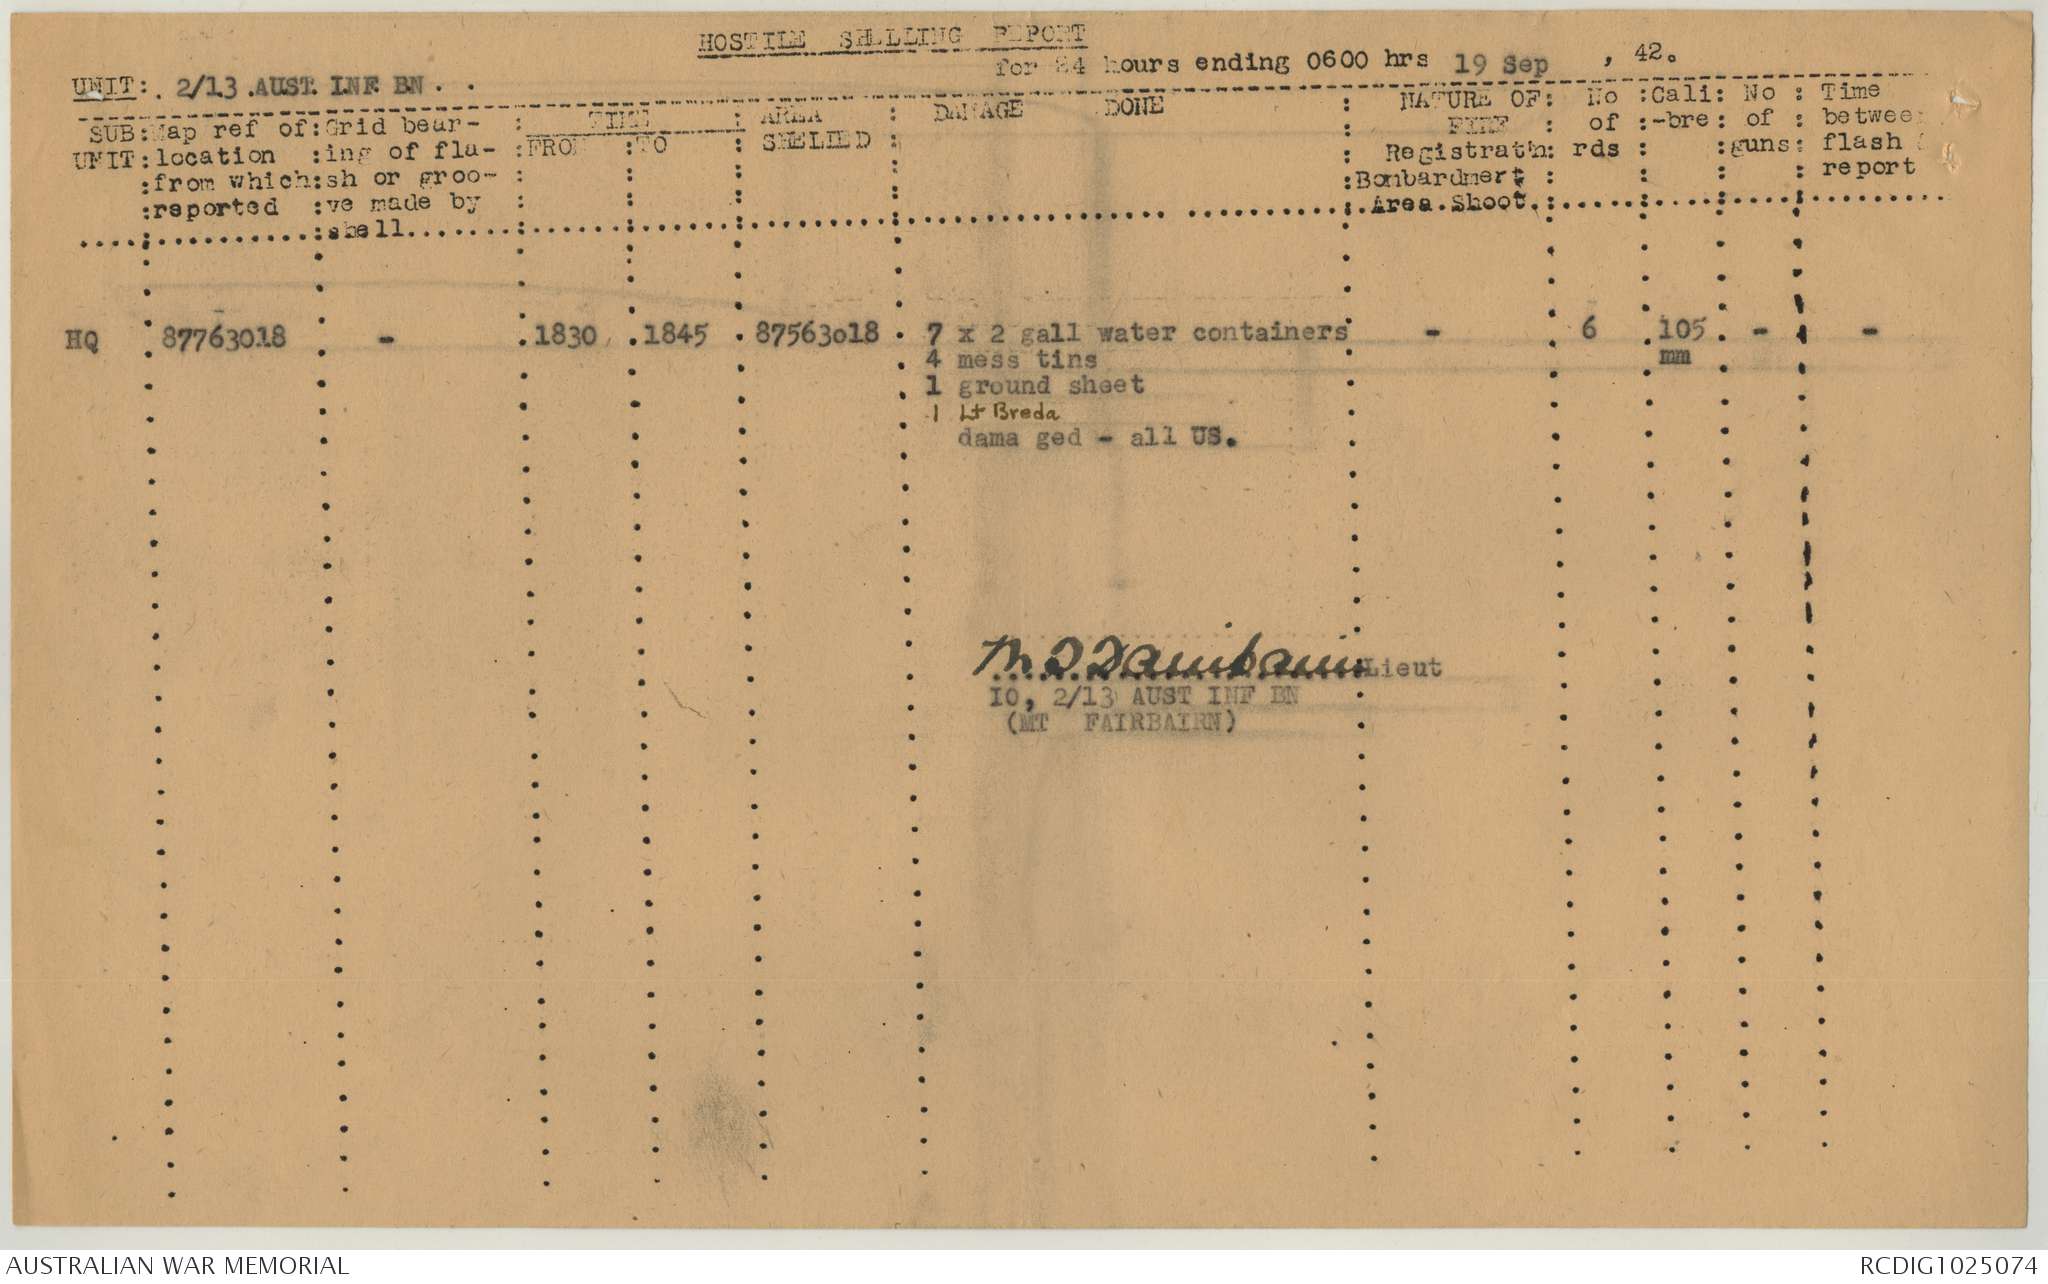 HOSTILE SHELLING REPORT
for 24 hours ending 0600 hrs 19 Sep , 42.
UNIT: . 2/13 .AUST. INF. BN . .
SUB UNIT: Map ref of location from which reported : Grid bear-ing of fla-sh or groo-ve made by shell : TIME FROM : TO : AREA SHELLED : DAMAGE DONE : NATURE OF FIRE Registrat'n Bombardment Area Shoot : No of rds : Cali-bre : No of guns : Time between flash report
HQ 87763018 - 1830 1845 87563018 7 x 2 gall water containers - 6 105 - -
4 mess tins mm
1 ground sheet
1 Lt Breda
dama ged - all US.
Lieut
IO, 2/13 AUST INF BN
(MT FAIRBAIRN)
AUSTRALIAN WAR MEMORIAL
RCDIG1025074